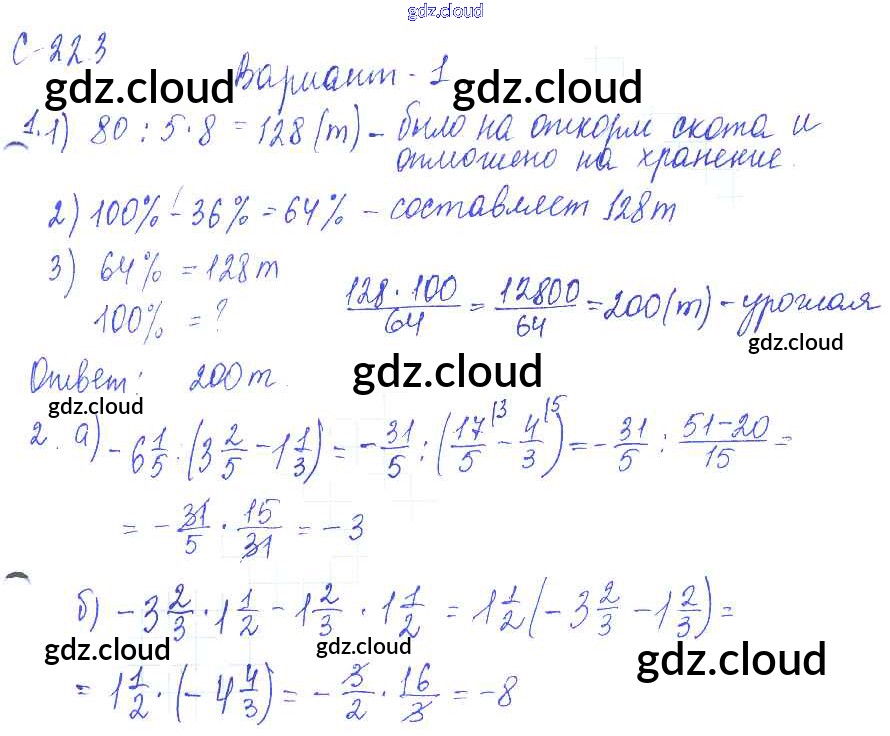 gdz.cloud
С-22.3
Вариант - 1
gdz.cloud gdz.cloud
1. 1) 80 : 5 · 8 = 128 (т) - было на откорм скота и
отложено на хранение.
2) 100% - 36% = 64% - составляет 128т
3) 64% = 128т
100% = ? 128 · 100/64 = 12800/64 = 200 (т) - урожая
gdz.cloud
Ответ: 200т.
gdz.cloud
gdz.cloud
2. а) -6 1/5 : (3 2/5 - 1 1/3) = -31/5 : (17/5 |3 - 4/3 |5) = -31/5 : 51-20/15 =
= -31/5 · 15/31 = -3
б) -3 2/3 · 1 1/2 - 1 2/3 · 1 1/2 = 1 1/2 (-3 2/3 - 1 2/3) =
gdz.cloud gdz.cloud gdz.cloud
= 1 1/2 · (-4 4/3) = -3/2 · 16/3 = -8